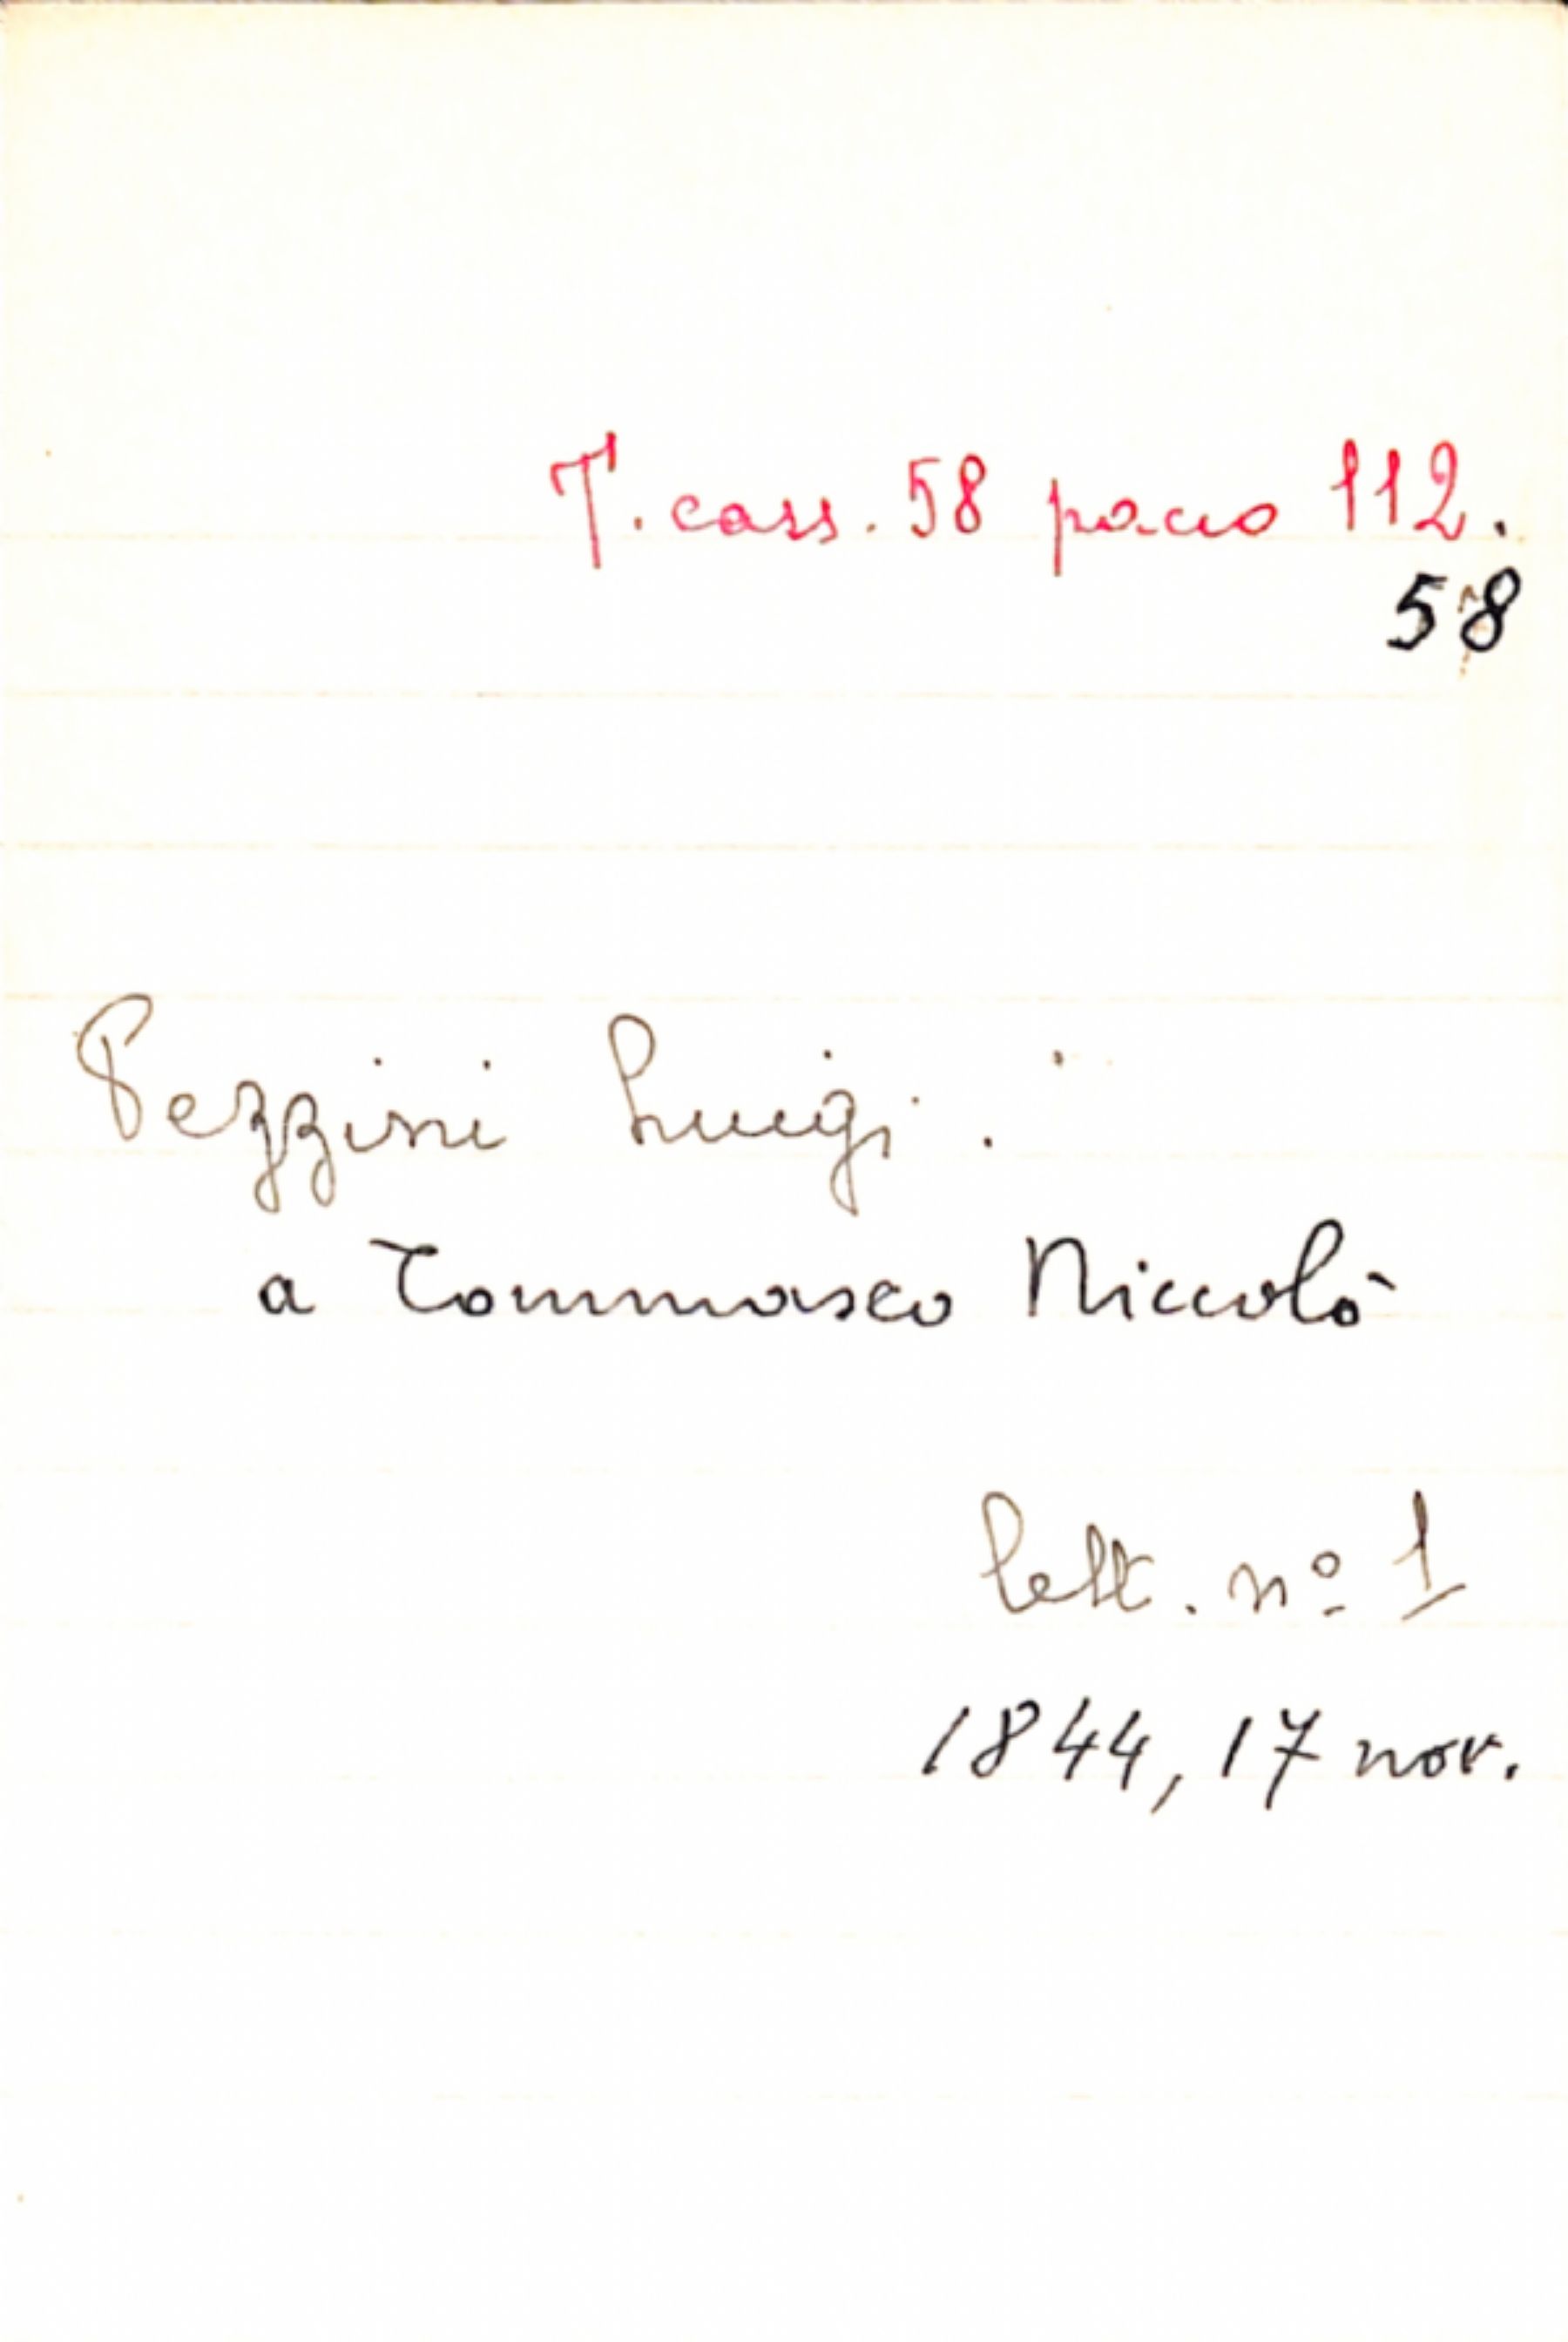 T. cass. 58 pacco 112.
58
Pezzini Luigi.
a Tommaseo Niccolò
lett. nº 1
1844, 17 nov.